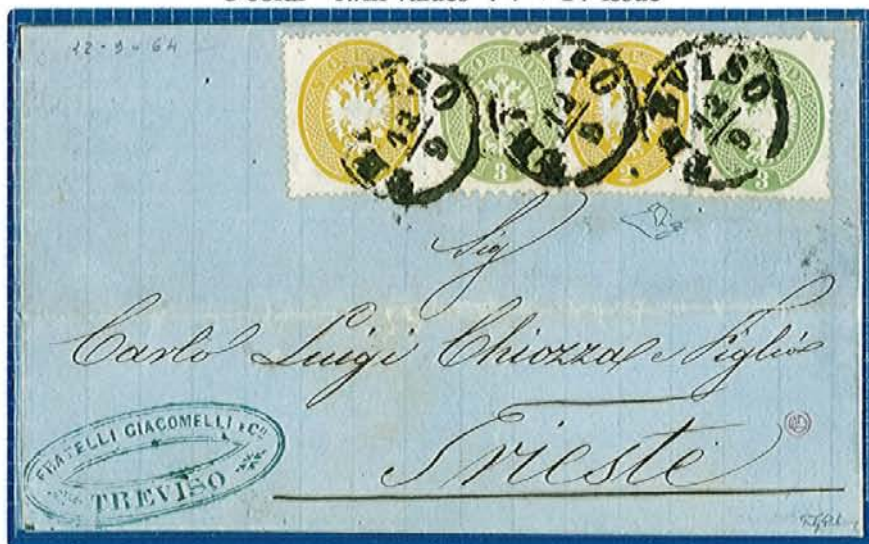 12 - 9 - 64
TREVISO
12/9
TREVISO
12/9
TREVISO
12/9
3
2
3
Sig
Carlo Luigi Chiozza e Figlio
Trieste
FRATELLI GIACOMELLI & Cº
TREVISO